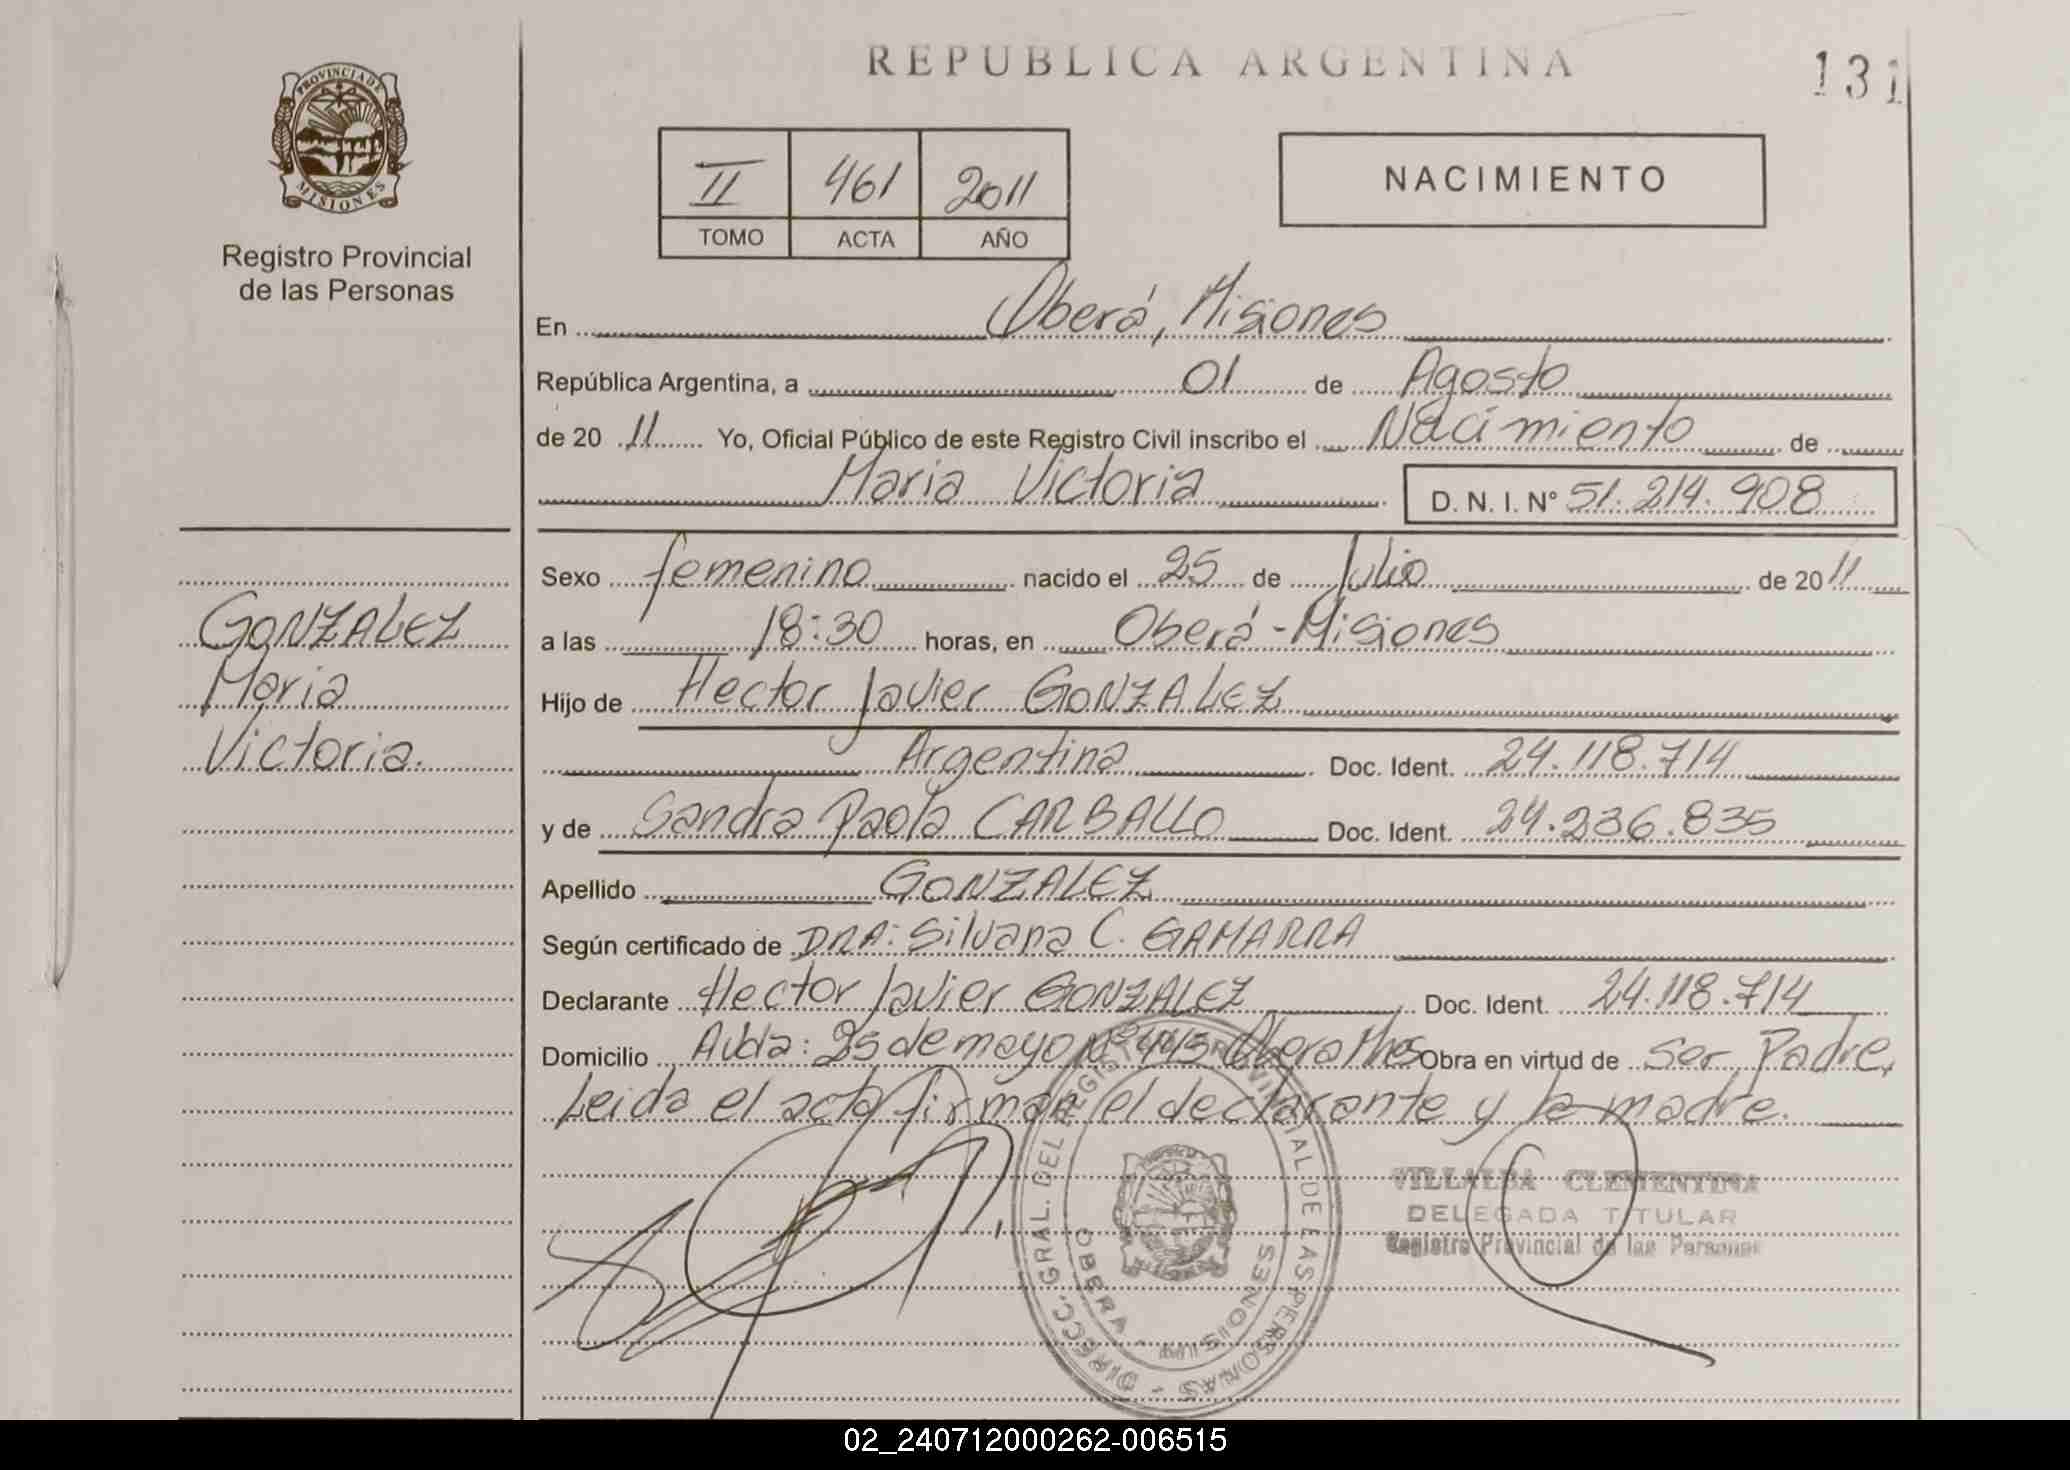 REPUBLICA ARGENTINA
131
PROVINCIA DE
MISIONES
Registro Provincial
de las Personas
II 461 2011
TOMO ACTA AÑO
NACIMIENTO
En Oberá, Misiones
República Argentina, a 01 de Agosto
de 20 11 Yo, Oficial Público de este Registro Civil inscribo el Nacimiento de
Maria Victoria D. N. I. Nº 51.214.908
Sexo femenino nacido el 25 de Julio de 20 11
a las 18:30 horas, en Oberá - Misiones
Hijo de Hector Javier GONZALEZ
Argentina Doc. Ident. 24.118.714
y de Sandra Paola CARBALLO Doc. Ident. 24.236.835
Apellido GONZALEZ
Según certificado de DRA: Silvana C. GAMARRA
Declarante Hector Javier GONZALEZ Doc. Ident. 24.118.714
Domicilio Avda: 25 de mayo Nº 445 Obera Mnes Obra en virtud de ser Padre,
Leida el acta firman el declarante y la madre.
GONZALEZ
Maria
Victoria.
DIRECC. GRAL. DEL REGISTRO PROVINCIAL DE LAS PERSONAS
OBERA - MISIONES
VILLALBA CLEMENTINA
DELEGADA TITULAR
Registro Provincial de las Personas
02_240712000262-006515